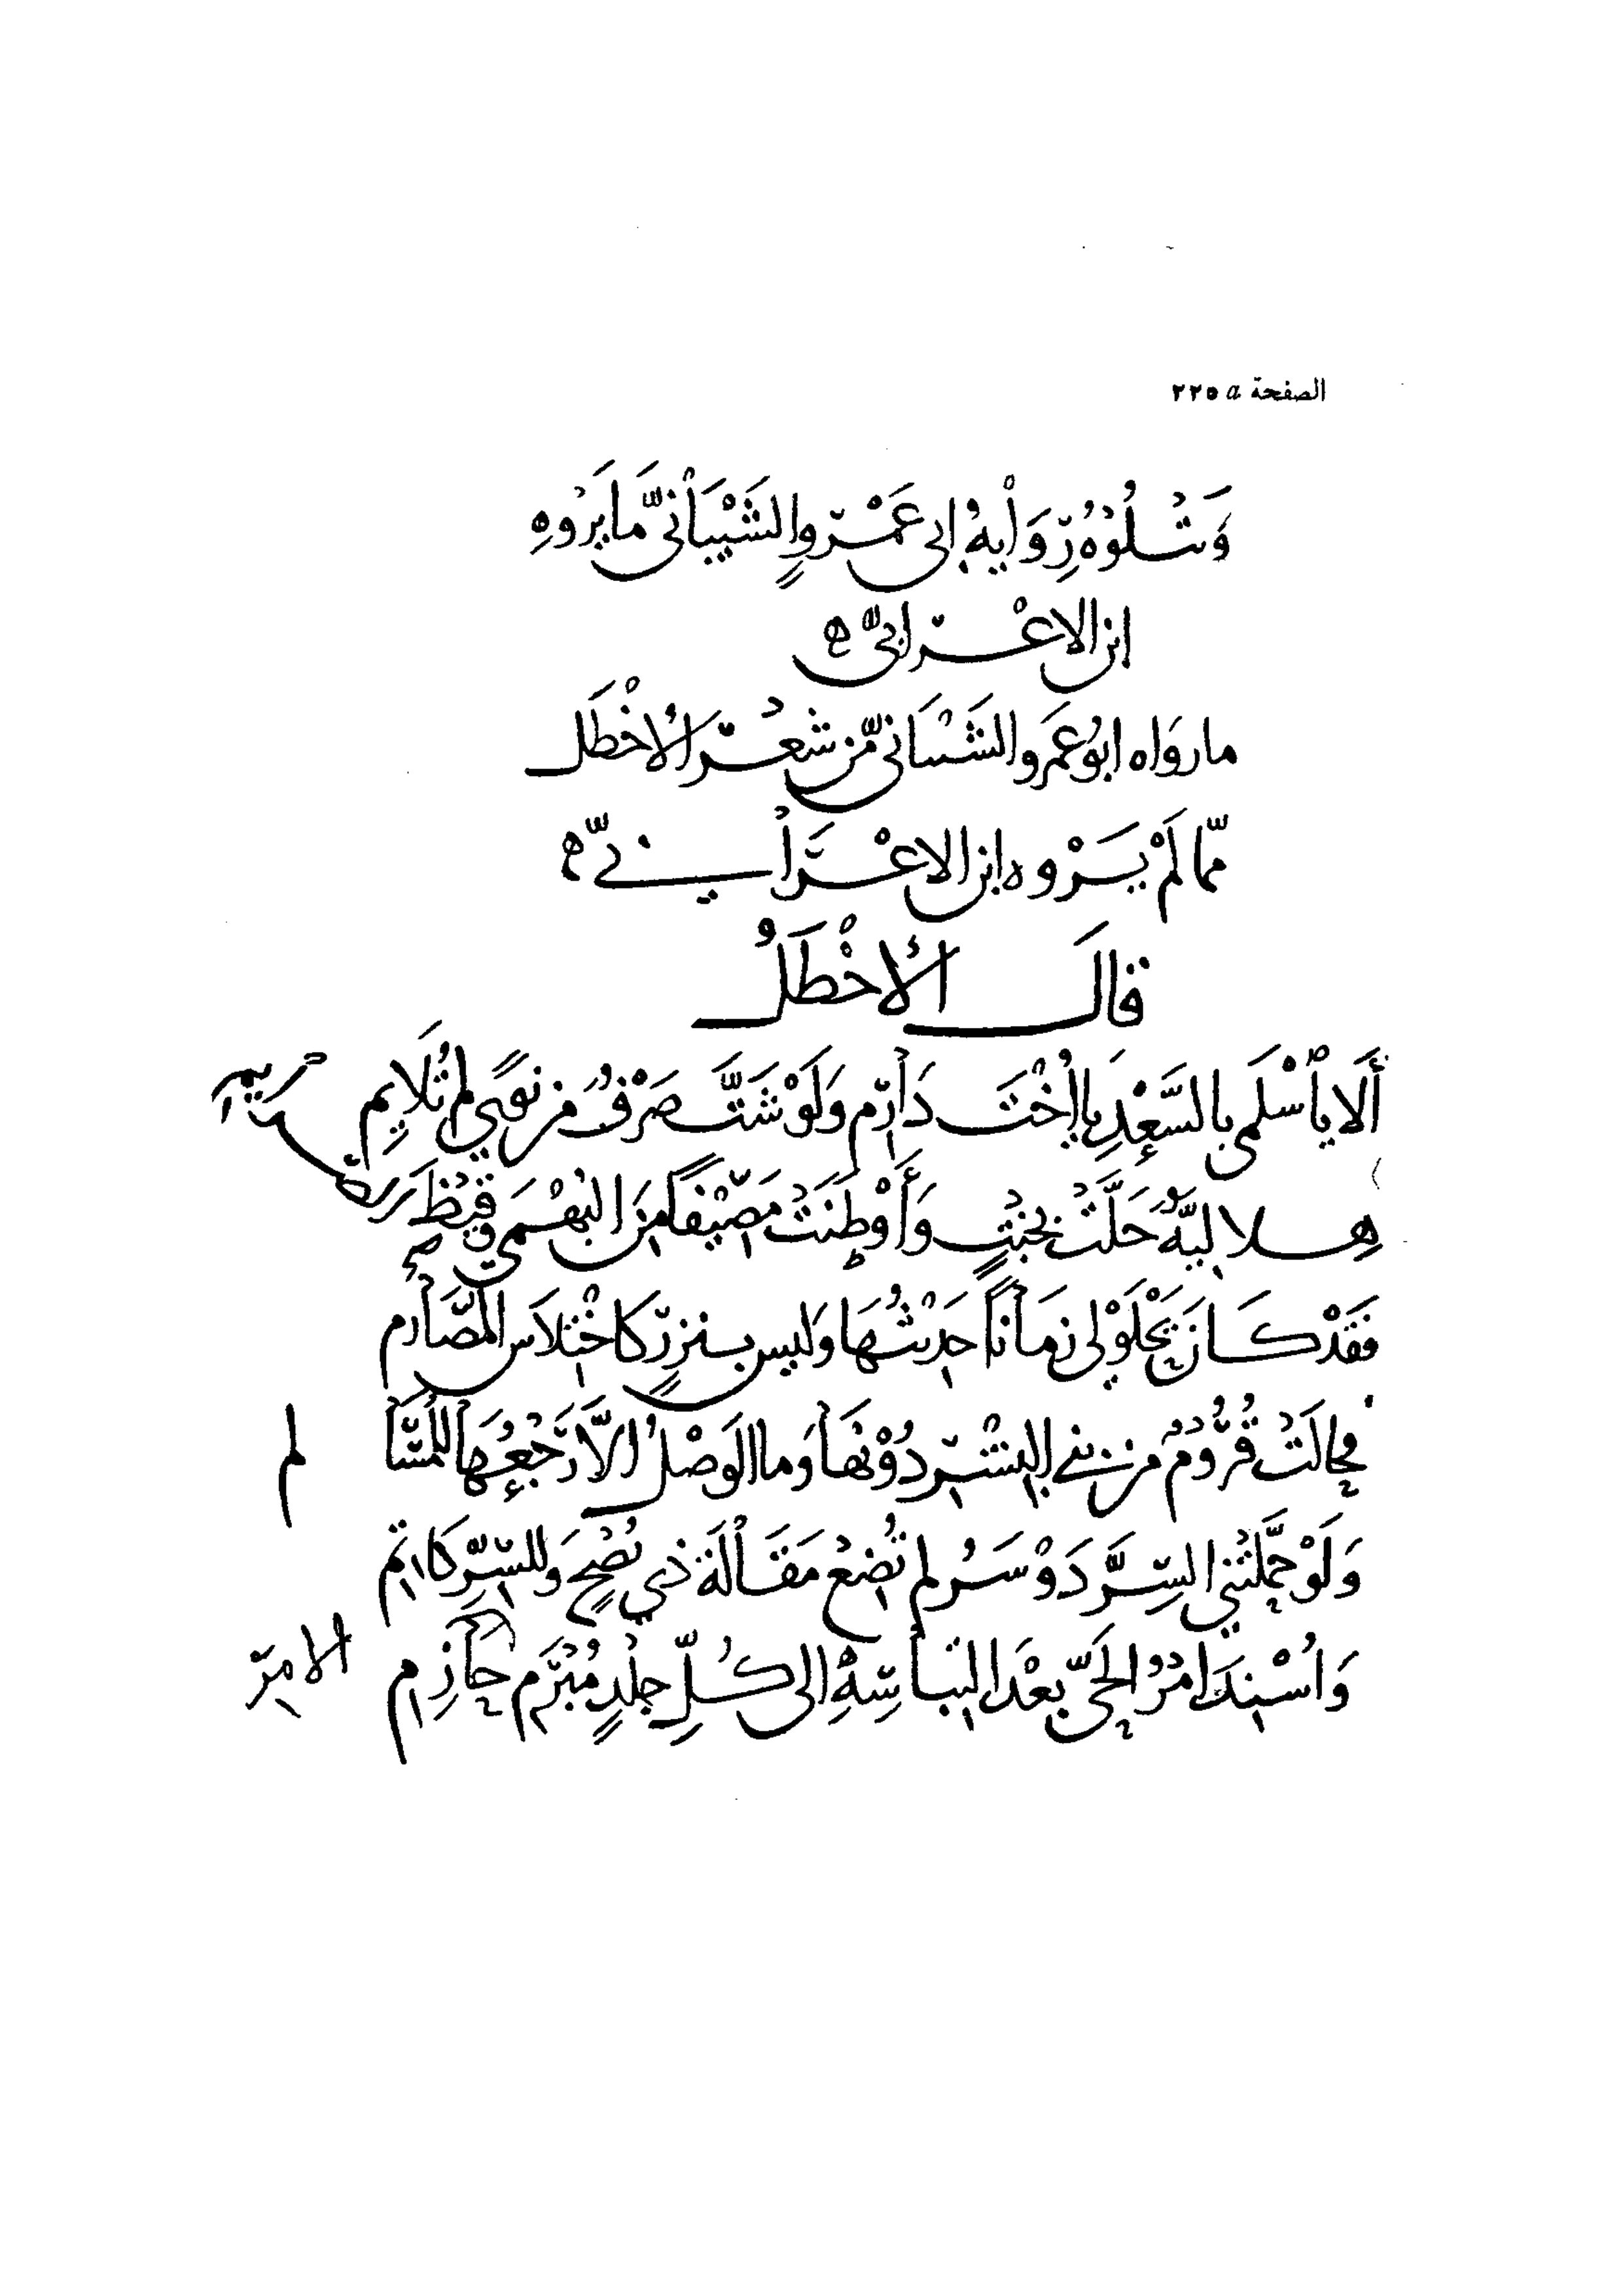 الصفحة a ٢٢٥
وَتَتْلُوْهُ رِوَايةُ ابى عَمْرٍو الشَيْبَانىّ مَا يَرْوهِ
ابن الاعْرابىّ
ما رَوَاه ابُو عَمَرو الشَيْبانىّ من شعْر الاخْطَل
ممّا لَمْ يَرْوه ابن الاعْرَابىّ
قالَ الأخْطَلُ
أَلَا يا اسْلَمى بالسَّعْدِ يا اُخْتَ دَارِم وَلَوْ شَتَّ صَرْفٌ من نوًى لم تُلَايِم
هلاليَّةٌ حَلَّتْ بخبْتٍ وَأَوْطنَتْ مَصِيْفاً منَ البُهْمَى وقيْظَ
فَقَدْ كَانَ يَحْلَوْلى زمَاناً حَدِيْثُهَا وَليس بنزرٍ كاخْتلاسَ المُصَارِم
فحالَتْ قُرُومٌ من بنى البِشْرِ دُوْنهَا وَما الوَصْلُ الاَّ رَجْعُهَا للمُسَا لم
وَلَوْ حَمَّلتْنِي السِّرَّ دَوْسَرُ لم تُضعْ مَقَالَةَ ذي نُصْحٍ وَللسِّرِّ كاتم
وَاُسْنِدَ امْرُ الحَىّ بعْدَ التباسِهِ الى كُلِّ جلدٍ مُبْرَم حَازِم الامر